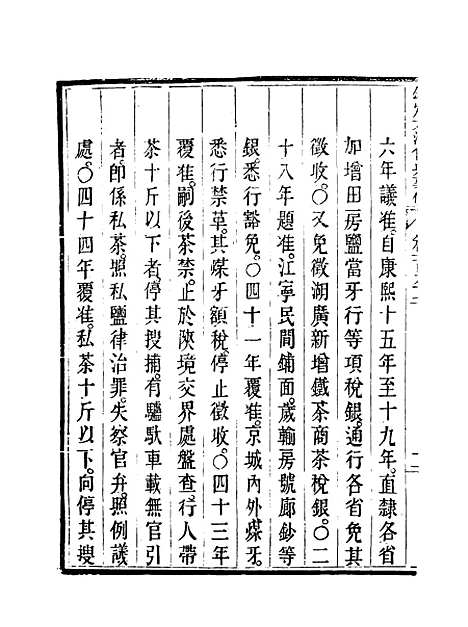 六年議准。自康熙十五年至十九年。直隸各省
加增田房鹽當牙行等項稅銀。通行各省免其
徵收。○又免徵湖廣新增鐵茶商茶稅銀。○二
十八年題准。江寧民間鋪面。歲輸房號廊鈔等
銀。悉行豁免。○四十一年覆准。京城內外煤牙。
悉行禁革。其煤牙額稅。停止徵收。○四十三年
覆准。嗣後茶禁。止於陝境交界處盤查。行人帶
茶十斤以下者。停其搜捕。有驢馱車載無官引
者。卽係私茶。照私鹽律治罪。失察官弁。照例議
處。○四十四年覆准。私茶十斤以下。向停其搜